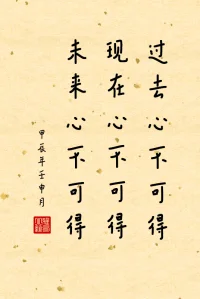 过去心不可得
现在心不可得
未来心不可得
甲辰年壬申月